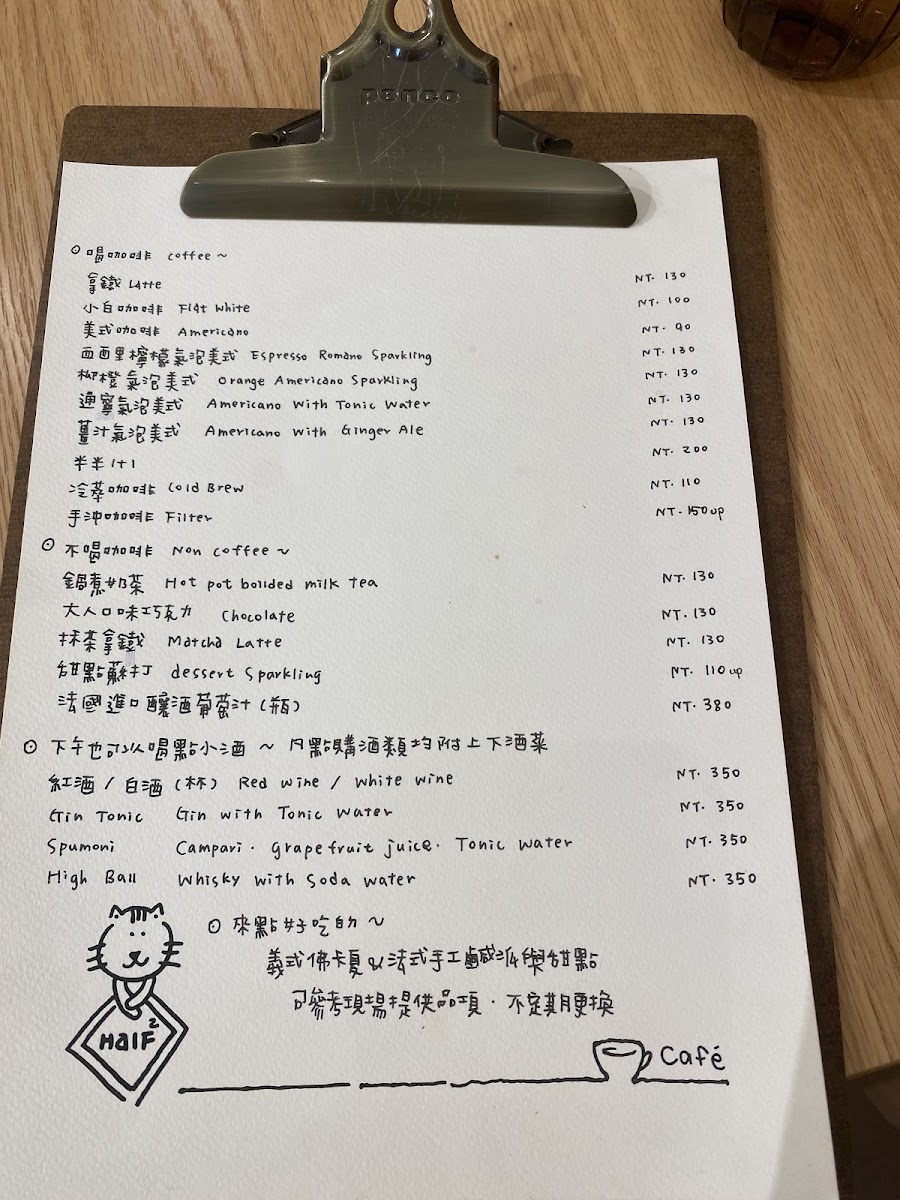 penco
⊙ 喝咖啡 coffee ~
拿鐵 Latte NT. 130
小白咖啡 Flat White NT. 100
美式咖啡 Americano NT. 90
西西里檸檬氣泡美式 Espresso Romano Sparkling NT. 130
柳橙氣泡美式 Orange Americano Sparkling NT. 130
通寧氣泡美式 Americano With Tonic Water NT. 130
薑汁氣泡美式 Americano with Ginger Ale NT. 130
半半 1+1 NT. 200
冷萃咖啡 Cold Brew NT. 110
手沖咖啡 Filter NT. 150up
⊙ 不喝咖啡 Non coffee ~
鍋煮奶茶 Hot pot boilded milk tea NT. 130
大人口味巧克力 Chocolate NT. 130
抹茶拿鐵 Matcha Latte NT. 130
甜點蘇打 dessert Sparkling NT. 110 up
法國進口釀酒葡萄汁(瓶) NT. 380
⊙ 下午也可以喝點小酒 ~ 凡點購酒類均附上下酒菜
紅酒 / 白酒 (杯) Red wine / White wine NT. 350
Gin Tonic Gin with Tonic Water NT. 350
Spumoni Campari. grapefruit juice. Tonic Water NT. 350
High Ball Whisky with Soda water NT. 350
⊙ 來點好吃的 ~
義式佛卡夏&法式手工鹹派與甜點
可參考現場提供品項. 不定期更換
Half²
Café